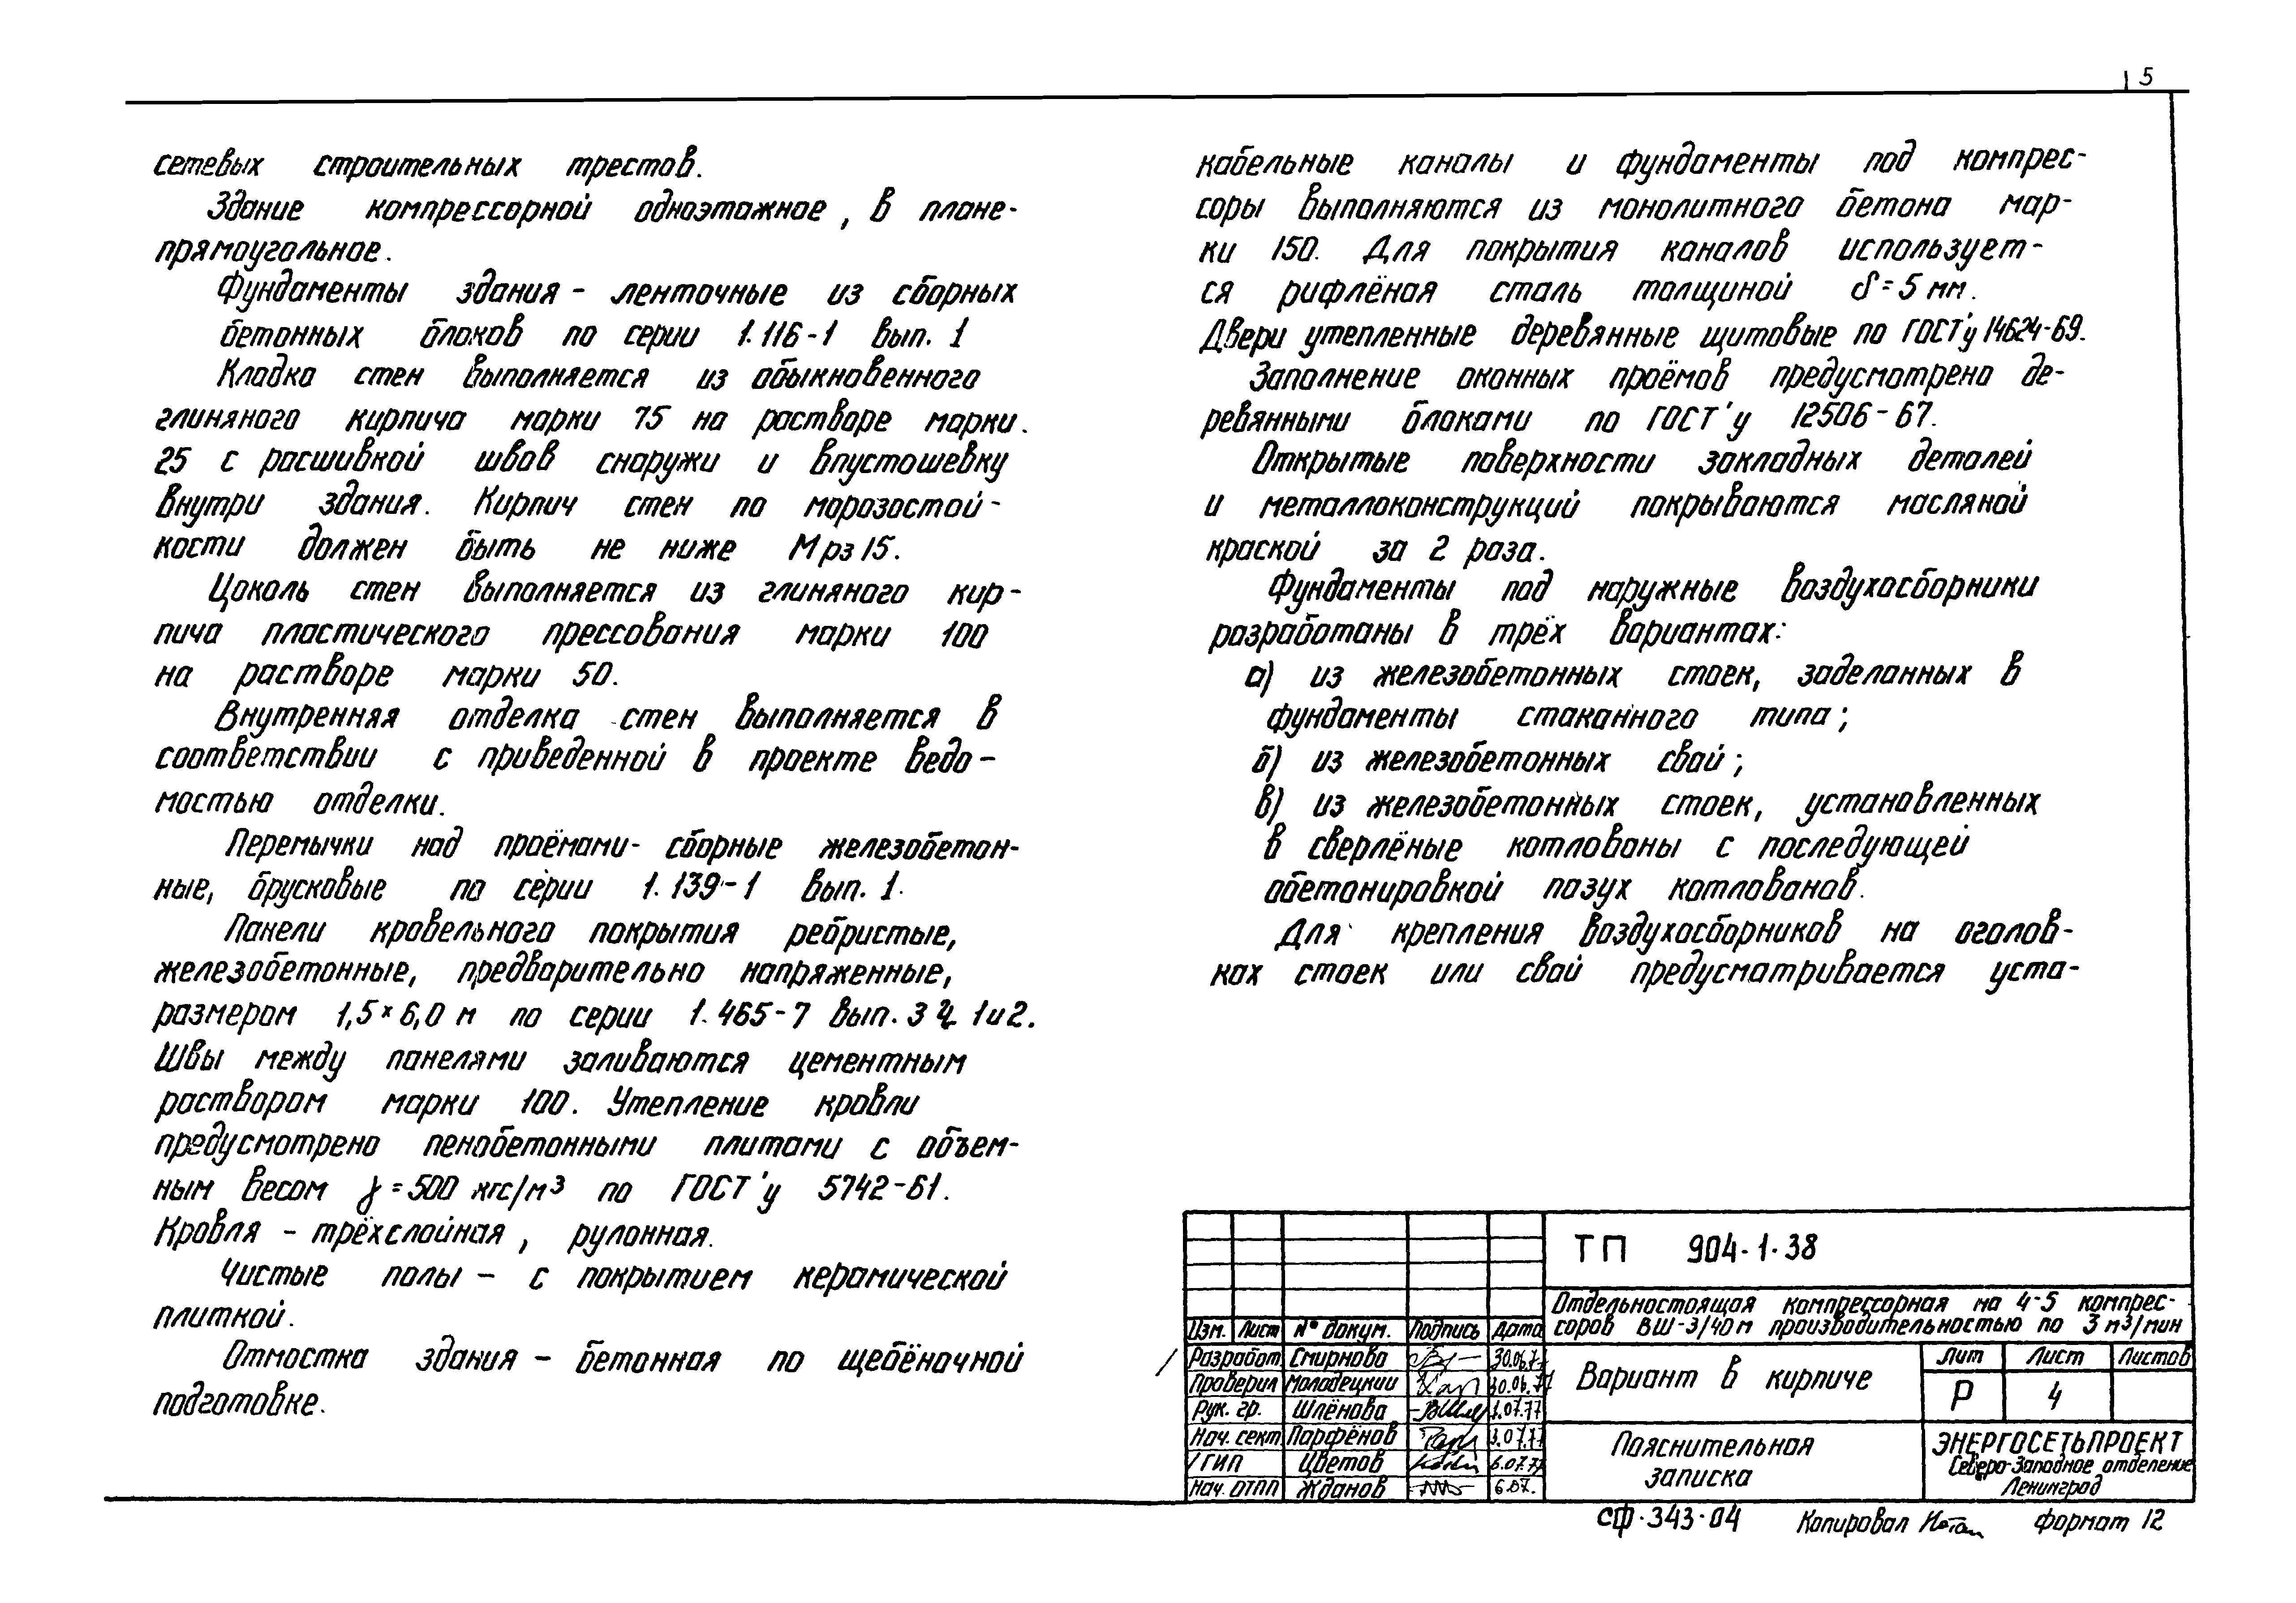 5
сетевых строительных трестов.
Здание компрессорной одноэтажное, в плане-
прямоугольное.
Фундаменты здания - ленточные из сборных
бетонных блоков по серии 1.116-1 вып. 1
Кладка стен выполняется из обыкновенного
глиняного кирпича марки 75 на растворе марки.
25 с расшивкой швов снаружи и впустошевку
внутри здания. Кирпич стен по морозостой-
кости должен быть не ниже Мрз 15.
Цоколь стен выполняется из глиняного кир-
пича пластического прессования марки 100
на растворе марки 50.
Внутренняя отделка стен выполняется в
соответствии с приведенной в проекте ведо-
мостью отделки.
Перемычки над проёмами- сборные железобетон-
ные, брусковые по серии 1.139-1 вып. 1.
Панели кровельного покрытия ребристые,
железобетонные, предварительно напряженные,
размером 1,5×6,0 м по серии 1.465-7 вып. 3 ч. 1и2.
Швы между панелями заливаются цементным
раствором марки 100. Утепление кровли
предусмотрено пенобетонными плитами с объем-
ным весом γ=500 кгс/м³ по ГОСТ'у 5742-61.
Кровля - трёхслойная, рулонная.
Чистые полы - с покрытием керамической
плиткой.
Отмостка здания - бетонная по щебёночной
подготовке.
кабельные каналы и фундаменты под компрес-
соры выполняются из монолитного бетона мар-
ки 150. Для покрытия каналов использует-
ся рифлёная сталь толщиной δ=5 мм.
Двери утепленные деревянные щитовые по ГОСТ'у 14624-69.
Заполнение оконных проёмов предусмотрено де-
ревянными блоками по ГОСТ'у 12506-67.
Открытые поверхности закладных деталей
и металлоконструкций покрываются масляной
краской за 2 раза.
Фундаменты под наружные воздухосборники
разработаны в трёх вариантах:
а) из железобетонных стоек, заделанных в
фундаменты стаканного типа;
б) из железобетонных свай;
в) из железобетонных стоек, установленных
в сверлёные котлованы с последующей
обетонировкой пазух котлованов.
Для крепления воздухосборников на оголов-
ках стоек или свай предусматривается уста-
ТП 904-1-38
Отдельностоящая компрессорная на 4-5 компрес-
соров ВШ-3/40м производительностью по 3 м³/мин
Изм. Лист № докум. Подпись Дата
Разработ Смирнова 30.06.77
Проверил Молодецкий 30.06.77
Рук. гр. Шлёнова 1.07.77
Нач. сект Парфёнов 3.07.77
ГИП Цветов 6.07.77
Нач. ОТПП Жданов 6.07.
Вариант в кирпиче
Лит Лист Листов
Р 4
Пояснительная
записка
ЭНЕРГОСЕТЬПРОЕКТ
Северо-Западное отделение
Ленинград
СФ-343-04 Копировал формат 12